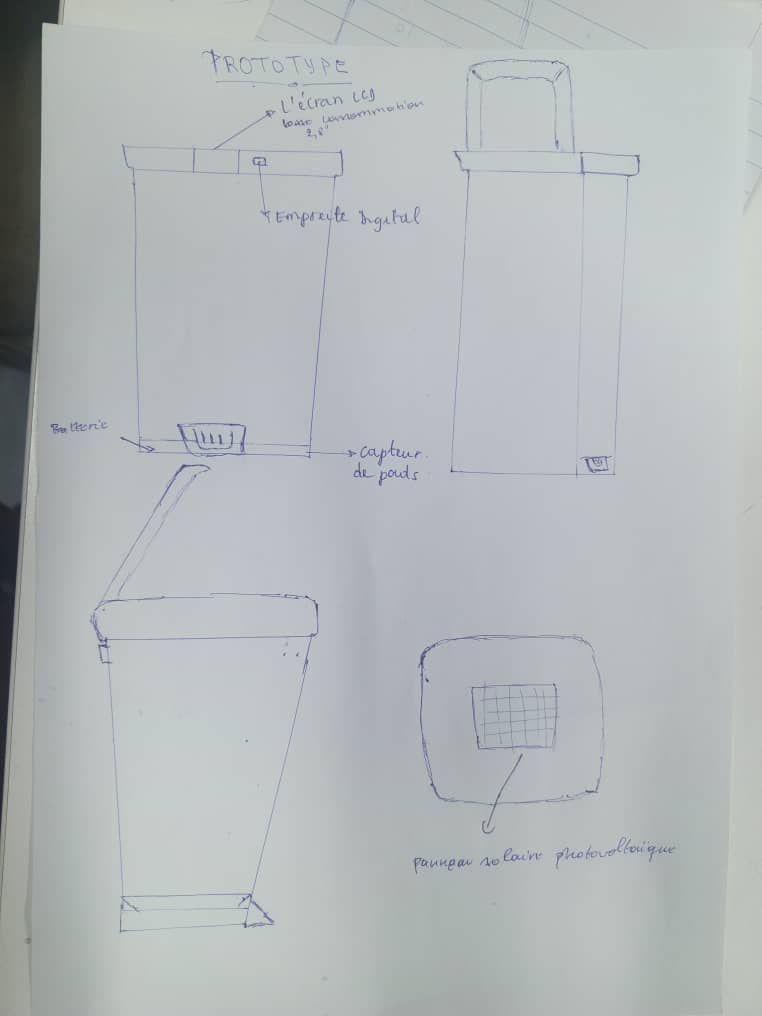 PROTOTYPE
L'écran LCD
basse consommation
2,8"
Empreite Digital
Batterie
capteur
de poids
panneau solaire photovoltaïque